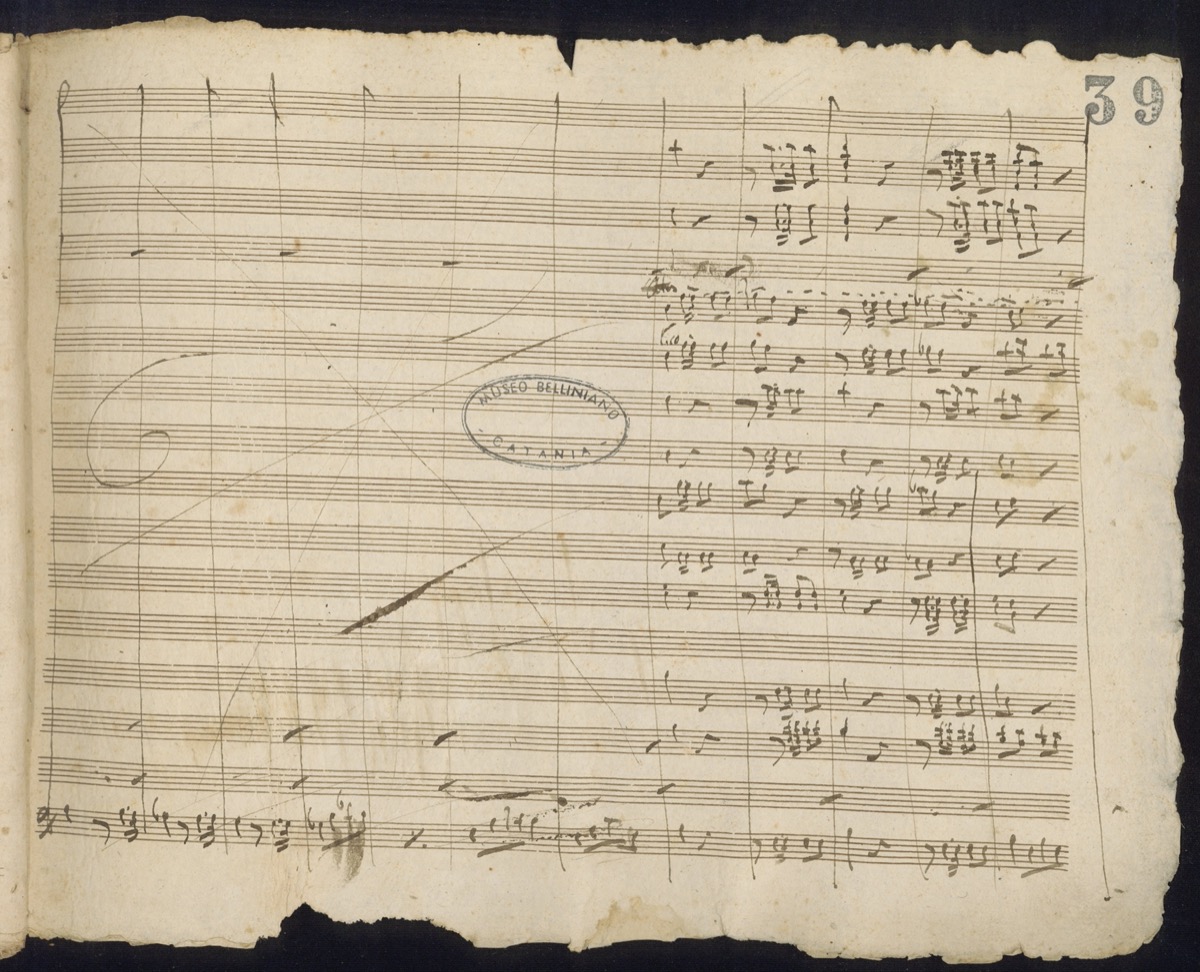 39
MUSEO BELLINIANO
CATANIA